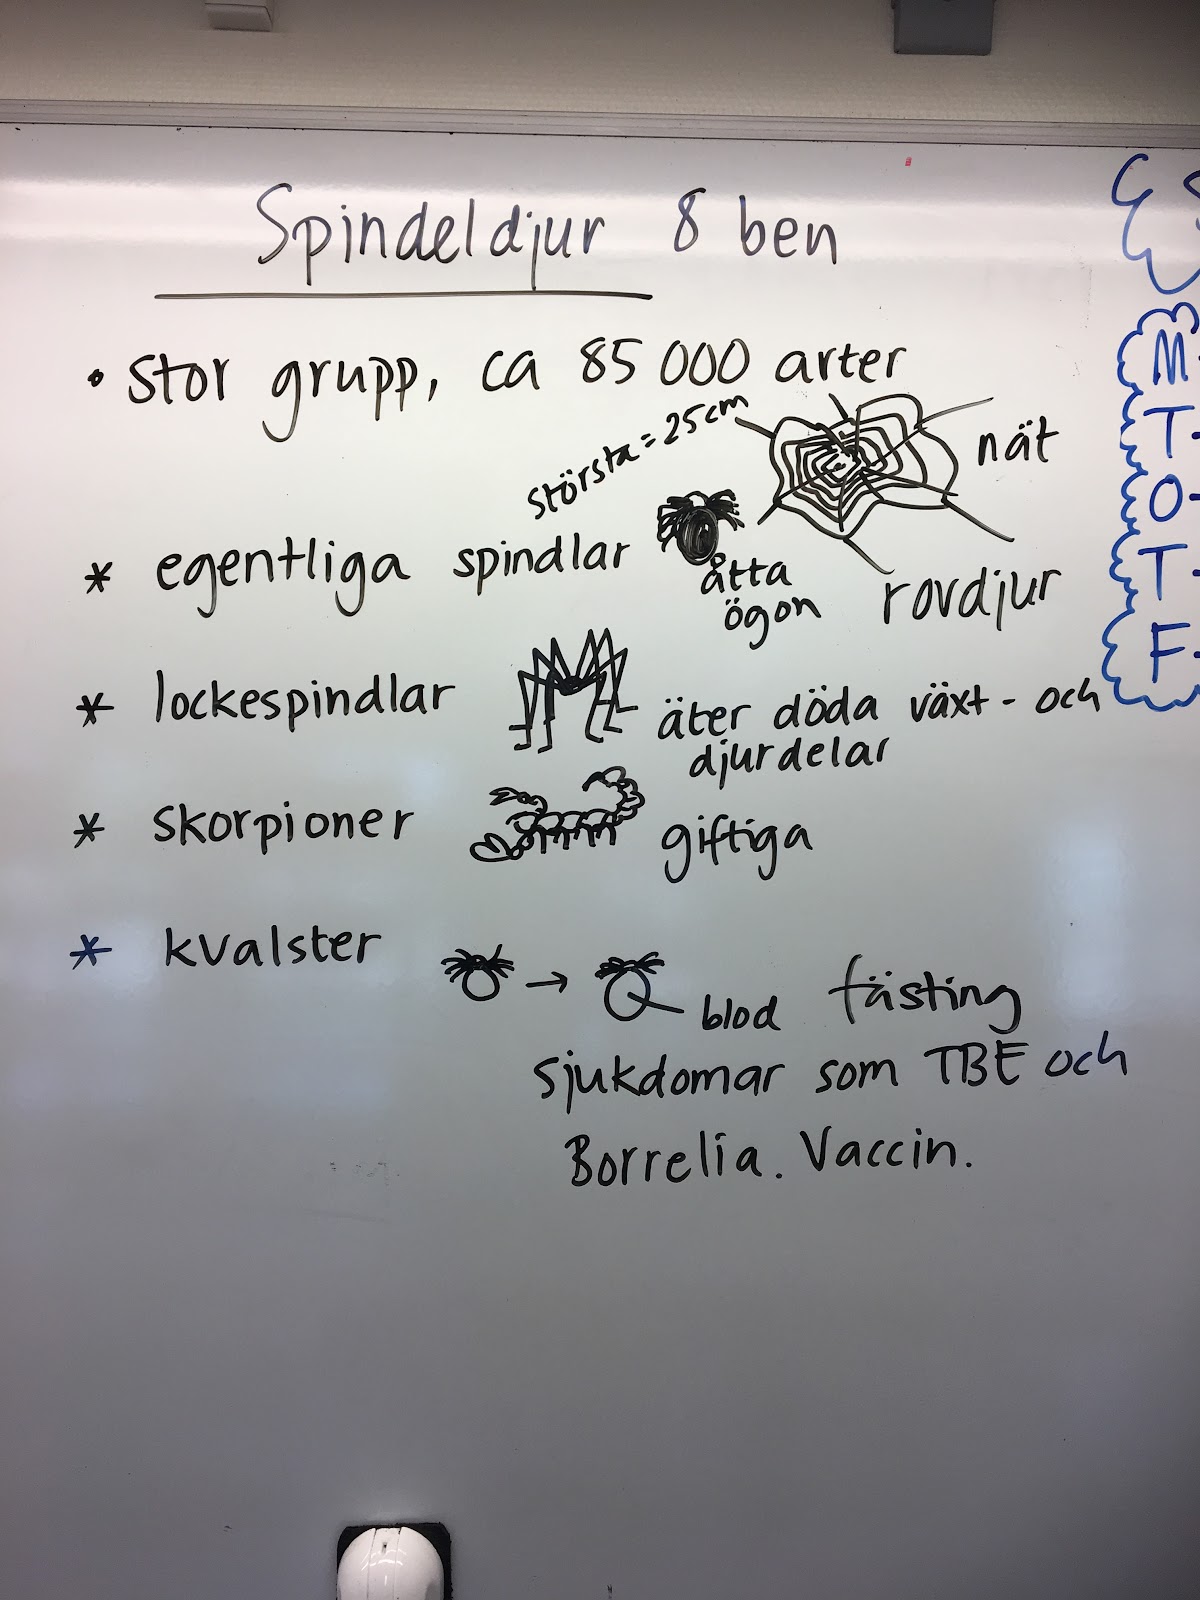 Spindeldjur 8 ben
• stor grupp, ca 85 000 arter
största = 25 cm
nät
* egentliga spindlar
åtta
ögon
rovdjur
* lockespindlar
äter döda växt- och
djurdelar
* skorpioner
giftiga
* kvalster
→
blod
fästing
sjukdomar som TBE och
Borrelia. Vaccin.
M
T
O
T
F